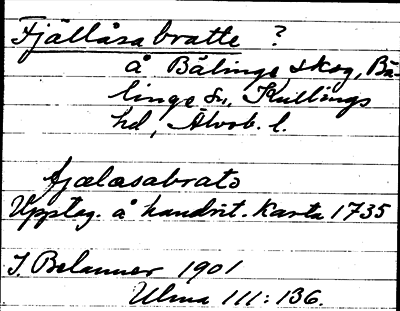 Fjällåsabratte ?
å Bälinge skog, Bä-
linge sn, Kullings
hd, Älvsb. l.
fjælasabrats
Upptag. å handrit. karta 1735
J. Belanner 1901
Ulma 111:136.